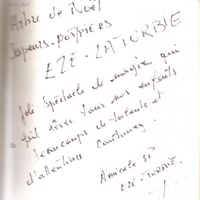 Arbre de Noël
Sapeurs-Pompiers
EZE-LA TURBIE
Joli Spectacle de magie qui
a fait rêver tous nos enfants
beaucoup de talent et
d'attentions
Continuez.
Amicale SP
EZE-TURBIE.